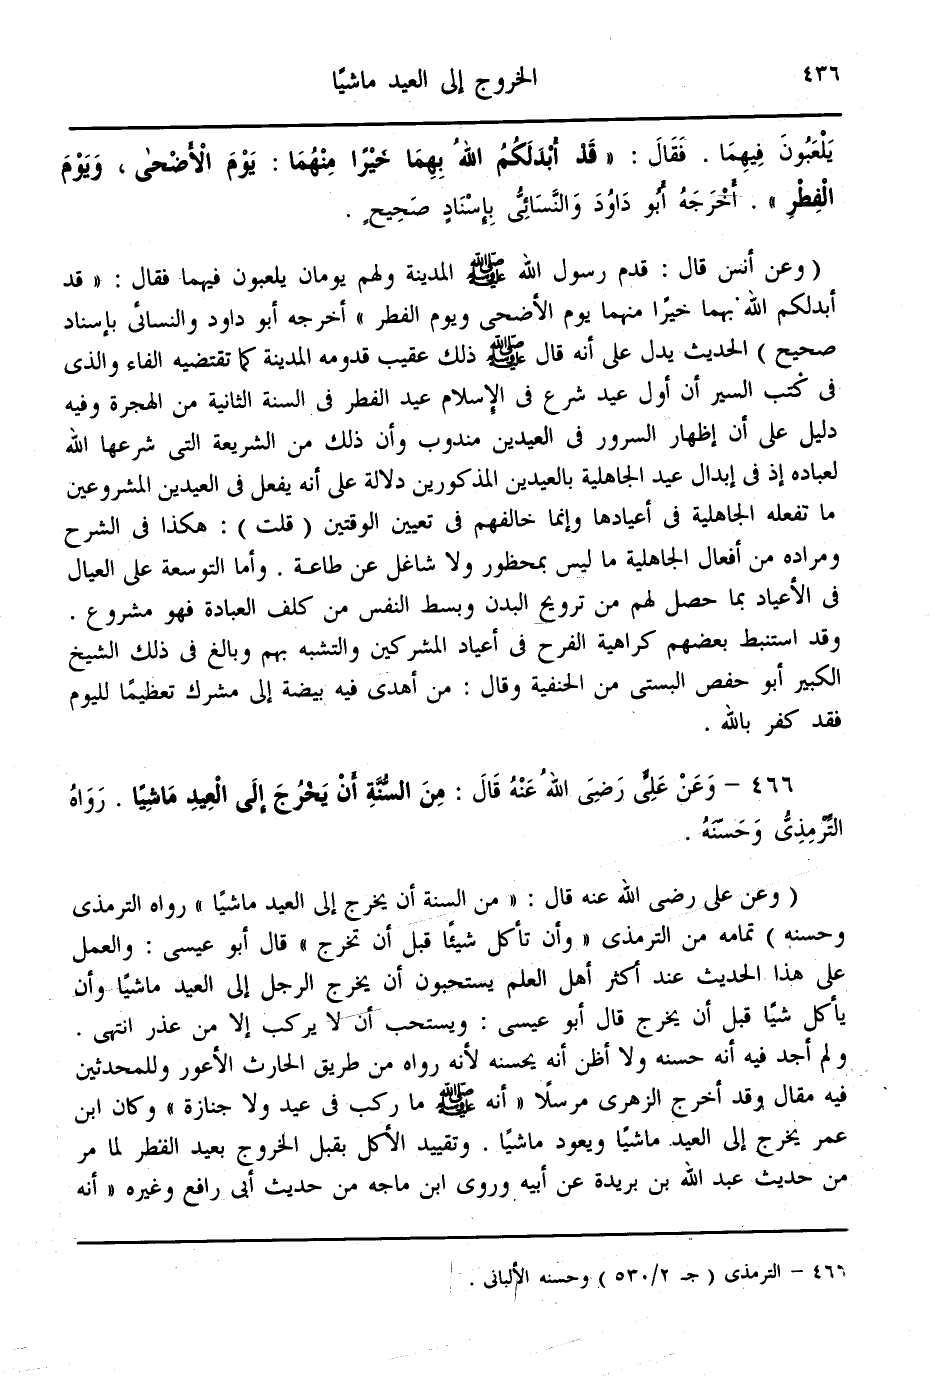 ٤٣٦
الخروج إلى العيد ماشيًا
يَلْعَبُونَ فِيهِمَا . فَقَالَ : « قَدْ أَبْدَلَكُمُ اللهُ بِهِمَا خَيْرًا مِنْهُمَا : يَوْمَ الْأَضْحَى ، وَيَوْمَ
الْفِطْرِ » . أَخْرَجَهُ أَبُو دَاوُدَ وَالنَّسَائِيُّ بِإِسْنَادٍ صَحِيحٍ .
( وعن أنس قال : قدم رسول الله ﷺ المدينة ولهم يومان يلعبون فيهما فقال : « قد
أبدلكم الله بهما خيرًا منهما يوم الأضحى ويوم الفطر » أخرجه أبو داود والنسائى بإسناد
صحيح ) الحديث يدل على أنه قال ﷺ ذلك عقيب قدومه المدينة كما تقتضيه الفاء والذى
فى كتب السير أن أول عيد شرع فى الإسلام عيد الفطر فى السنة الثانية من الهجرة وفيه
دليل على أن إظهار السرور فى العيدين مندوب وأن ذلك من الشريعة التى شرعها الله
لعباده إذ فى إبدال عيد الجاهلية بالعيدين المذكورين دلالة على أنه يفعل فى العيدين المشروعين
ما تفعله الجاهلية فى أعيادها وإنما خالفهم فى تعيين الوقتين ( قلت ) : هكذا فى الشرح
ومراده من أفعال الجاهلية ما ليس بمحظور ولا شاغل عن طاعة . وأما التوسعة على العيال
فى الأعياد بما حصل لهم من ترويح البدن وبسط النفس من كلف العبادة فهو مشروع .
وقد استنبط بعضهم كراهية الفرح فى أعياد المشركين والتشبه بهم وبالغ فى ذلك الشيخ
الكبير أبو حفص البستى من الحنفية وقال : من أهدى فيه بيضة إلى مشرك تعظيمًا لليوم
فقد كفر بالله .
٤٦٦ - وَعَنْ عَلِىٍّ رَضِىَ اللهُ عَنْهُ قَالَ : مِنَ السُّنَّةِ أَنْ يَخْرُجَ إِلَى الْعِيدِ مَاشِيًا . رَوَاهُ
التِّرْمِذِىُّ وَحَسَّنَهُ .
( وعن على رضى الله عنه قال : « من السنة أن يخرج إلى العيد ماشيًا » رواه الترمذى
وحسنه ) تمامه من الترمذى « وأن تأكل شيئًا قبل أن تخرج » قال أبو عيسى : والعمل
على هذا الحديث عند أكثر أهل العلم يستحبون أن يخرج الرجل إلى العيد ماشيًا وأن
يأكل شيًا قبل أن يخرج قال أبو عيسى : ويستحب أن لا يركب إلا من عذر انتهى .
ولم أجد فيه أنه حسنه ولا أظن أنه يحسنه لأنه رواه من طريق الحارث الأعور وللمحدثين
فيه مقال وقد أخرج الزهرى مرسلًا « أنه ﷺ ما ركب فى عيد ولا جنازة » وكان ابن
عمر يخرج إلى العيد ماشيًا ويعود ماشيًا . وتقييد الأكل بقبل الخروج بعيد الفطر لما مر
من حديث عبد الله بن بريدة عن أبيه وروى ابن ماجه من حديث أبى رافع وغيره « أنه
٤٦٦ - الترمذى ( جـ ٥٣٠/٢ ) وحسنه الألبانى .